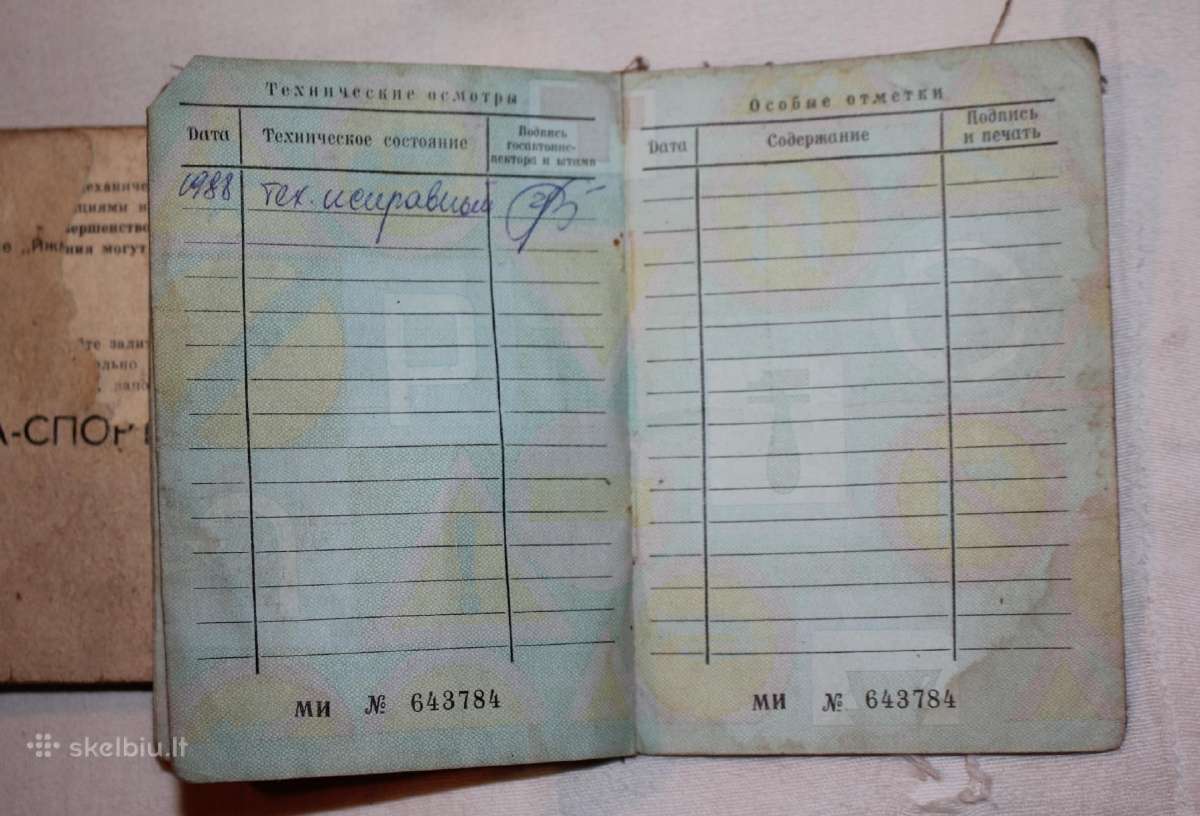 Технические осмотры
Дата
Техническое состояние
Подпись
госавтоинс-
пектора и штамп
1988 тех. исправный
МИ № 643784
Особые отметки
Дата
Содержание
Подпись
и печать
МИ № 643784
механиче
циями и
вершенство
е „Иж
ния могут
те залит
льно
запо
А-СПОРТ
skelbiu.lt